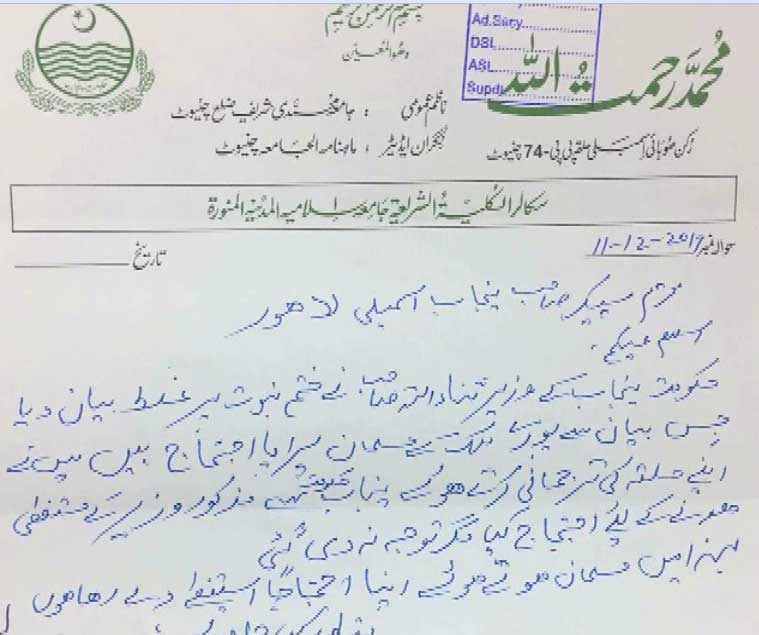 بسم اللہ الرحمن الرحیم
وھو المستعین
Ad.Secy
DSL
ASL
Supdt
محمد رحمت اللہ
رکن صوبائی اسمبلی حلقہ پی پی-74 چنیوٹ
ناظم عمومی : جامعہ محمدی شریف ضلع چنیوٹ
نگران ایڈیٹر ، ماہنامہ الجامعہ چنیوٹ
سکالر الکلیۃ الشریعۃ جامعہ اسلامیہ المدینۃ المنورۃ
حوالہ نمبر 11-12-2017
تاریخ
محترم سپیکر صاحب پنجاب اسمبلی لاھور
اسلام علیکم۔
حکومت پنجاب کے وزیر ثناء اللہ صاحب نے ختم نبوت پر غلط بیان دیا
جس بیان سے پورے ملک کے مسلمان سراپا احتجاج ہیں میں نے
اپنے حلقہ کی ترجمانی کرتے ھوئے پنجاب حکومت سے مذکور وزیر کے مستعفی
ھونے کے لئے احتجاج کیا مگر توجہ نہ دی گئی
لہذا میں مسلمان ھوتے ھوئے اپنا احتجاجاً استعفیٰ دے رھا ھوں